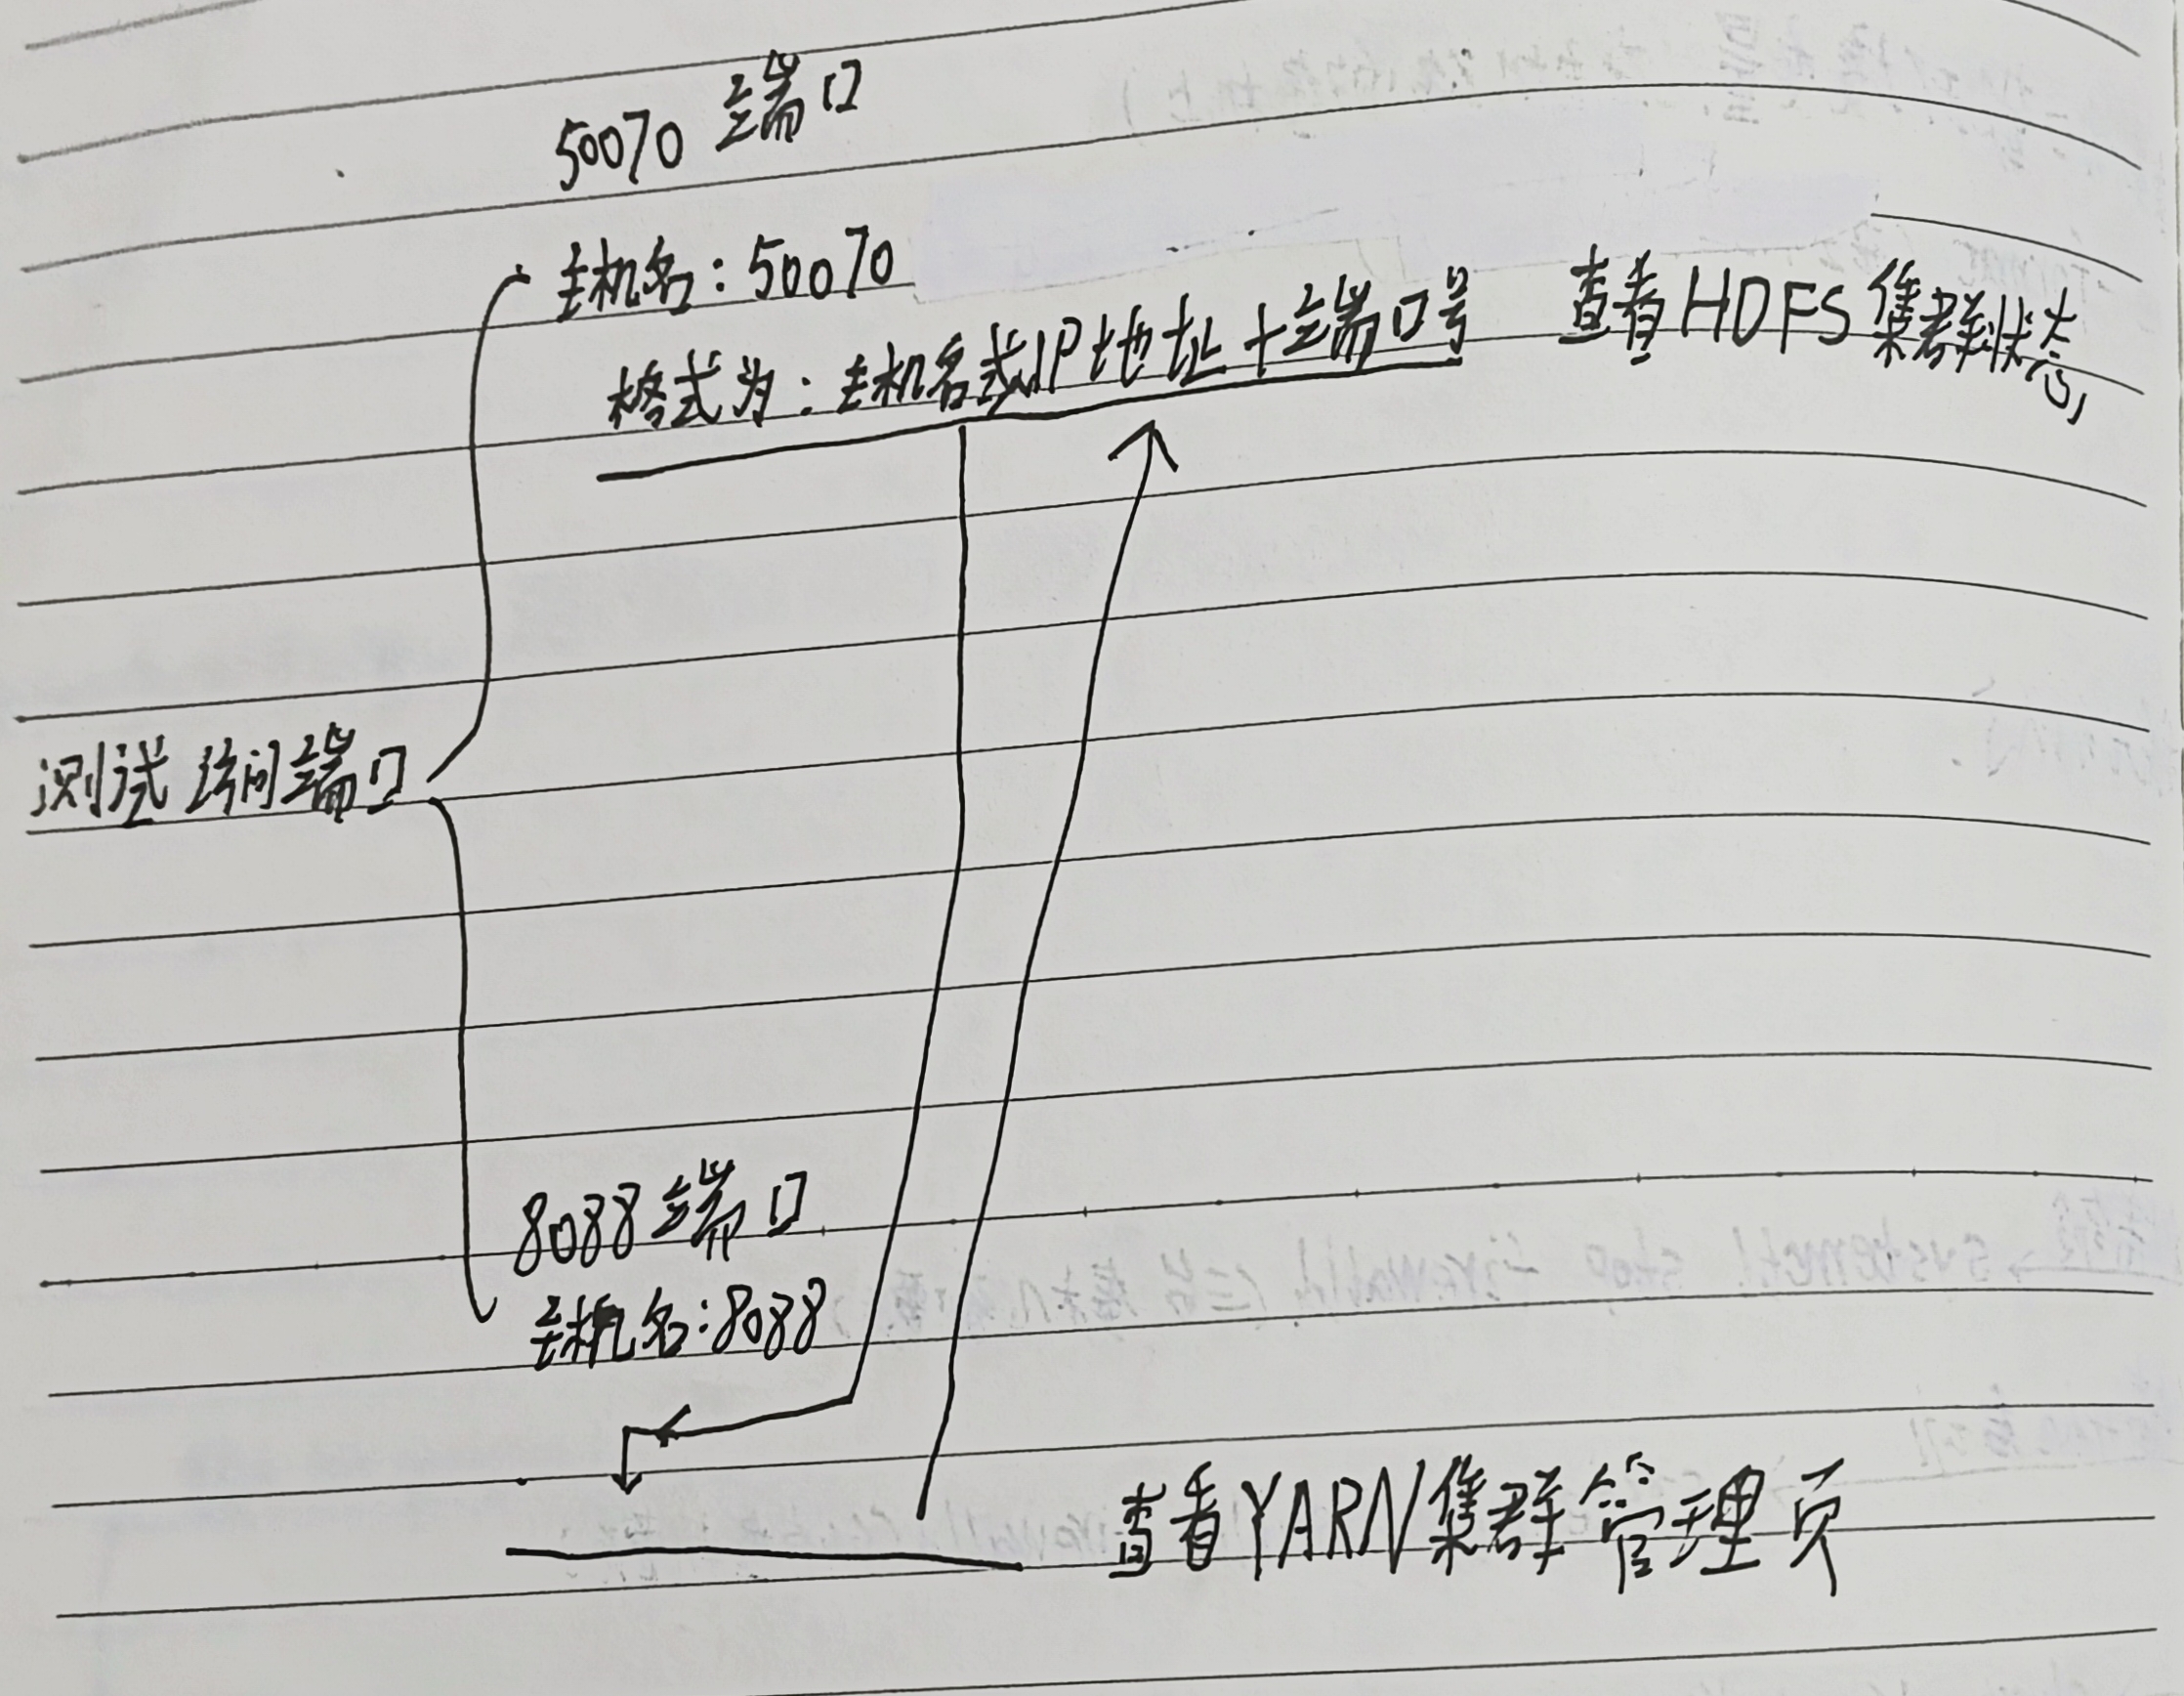 50070 端口
主机名：50070
格式为：主机名或IP地址+端口号 查看HDFS集群状态
测试访问端口
8088端口
主机名:8088
查看YARN集群管理页